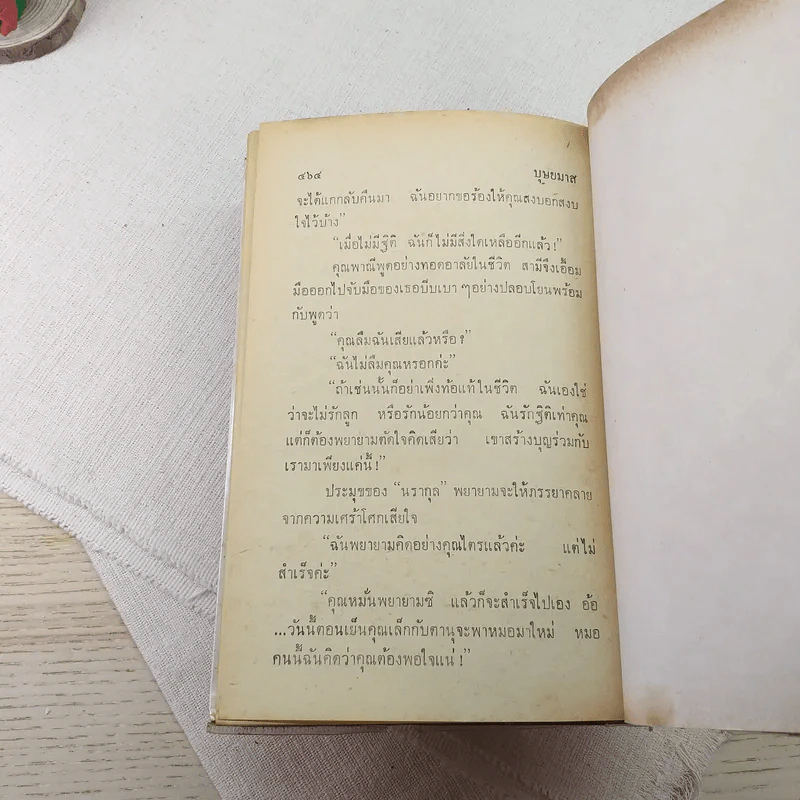 ๔๖๔ บุษยมาส
จะได้แกกลับคืนมา ฉันอยากขอร้องให้คุณสงบอกสงบ
ใจไว้บ้าง”
“เมื่อไม่มีฐิติ ฉันก็ไม่มีสิ่งใดเหลืออีกแล้ว!”
คุณพาณีพูดอย่างทอดอาลัยในชีวิต สามีจึงเอื้อม
มือออกไปจับมือของเธอบีบเบา ๆอย่างปลอบโยนพร้อม
กับพูดว่า
“คุณลืมฉันเสียแล้วหรือ?”
“ฉันไม่ลืมคุณหรอกค่ะ”
“ถ้าเช่นนั้นก็อย่าเพิ่งท้อแท้ในชีวิต ฉันเองใช่
ว่าจะไม่รักลูก หรือรักน้อยกว่าคุณ ฉันรักฐิติเท่าคุณ
แต่ก็ต้องพยายามตัดใจคิดเสียว่า เขาสร้างบุญร่วมกับ
เรามาเพียงแค่นี้!”
ประมุขของ “นรากุล” พยายามจะให้ภรรยาคลาย
จากความเศร้าโศกเสียใจ
“ฉันพยายามคิดอย่างคุณไตรแล้วค่ะ แต่ไม่
สำเร็จค่ะ”
“คุณหมั่นพยายามซิ แล้วก็จะสำเร็จไปเอง อ้อ
...วันนี้ตอนเย็นคุณเล็กกับตานุจะพาหมอมาใหม่ หมอ
คนนี้ฉันคิดว่าคุณต้องพอใจแน่!”